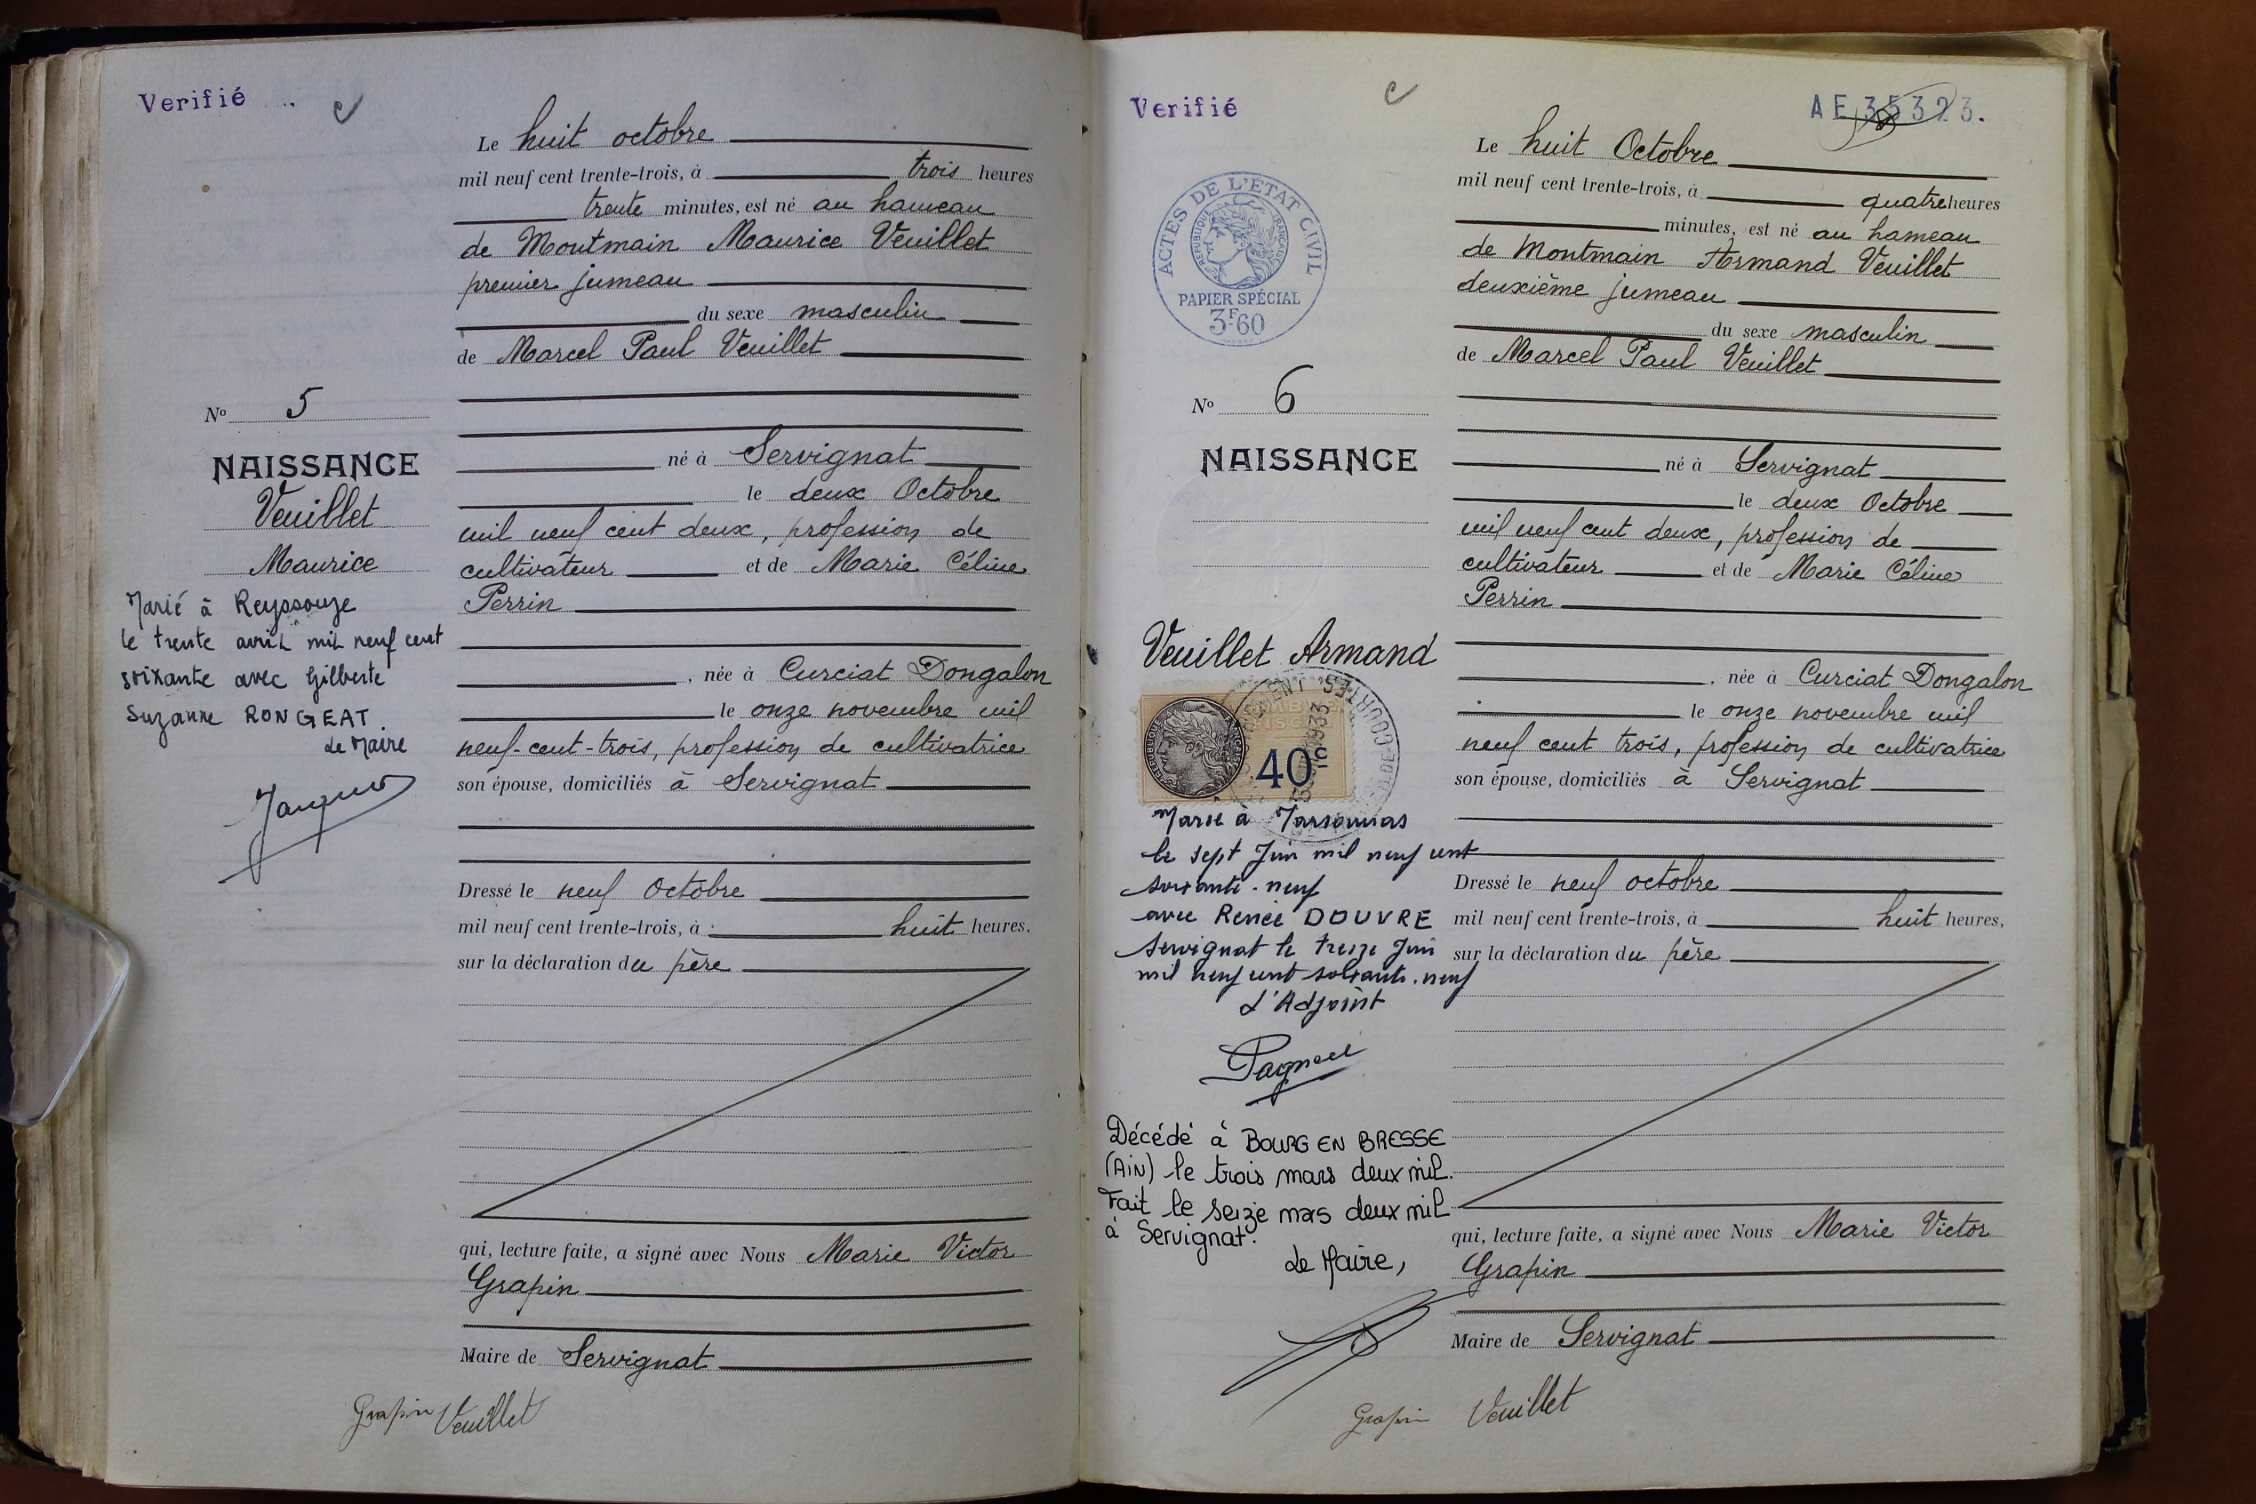 Verifié
Le huit octobre
mil neuf cent trente-trois, à trois heures
trente minutes, est né au hameau
de Montmain Maurice Veuillet
premier jumeau
du sexe masculin
de Marcel Paul Veuillet
né à Servignat
le deux Octobre
mil neuf cent deux, profession de
cultivateur et de Marie Céline
Perrin
, née à Curciat Dongalon
le onze novembre mil
neuf-cent-trois, profession de cultivatrice
son épouse, domiciliés à Servignat
Dressé le neuf Octobre
mil neuf cent trente-trois, à huit heures.
sur la déclaration du père
qui, lecture faite, a signé avec Nous Marie Victor
Grapin
Maire de Servignat
Grapin Veuillet
No 5
NAISSANCE
Veuillet
Maurice
Marié à Reyssouze
le trente avril mil neuf cent
soixante avec Gilberte
Suzanne RONGEAT.
Le Maire
Verifié
AE 35323.
ACTES DE L'ETAT CIVIL
REPUBLIQUE FRANÇAISE
PAPIER SPÉCIAL
3F60
Le huit Octobre
mil neuf cent trente-trois, à quatre heures
minutes, est né au hameau
de Montmain Armand Veuillet
deuxième jumeau
du sexe masculin
de Marcel Paul Veuillet
né à Servignat
le deux Octobre
mil neuf cent deux, profession de
cultivateur et de Marie Céline
Perrin
, née à Curciat Dongalon
le onze novembre mil
neuf cent trois, profession de cultivatrice
son épouse, domiciliés à Servignat
Dressé le neuf octobre
mil neuf cent trente-trois, à huit heures,
sur la déclaration du père
qui, lecture faite, a signé avec Nous Marie Victor
Grapin
Maire de Servignat
Grapin Veuillet
No 6
NAISSANCE
Veuillet Armand
40c
1933
Marié à Marsonnas
le sept Juin mil neuf cent
soixante-neuf
avec Renée DOUVRE
Servignat le treize Juin
mil neuf cent soixante-neuf
L'Adjoint
Décédé à BOURG EN BRESSE
(AIN) le trois mars deux mil.
Fait le seize mars deux mil
à Servignat.
Le Maire,